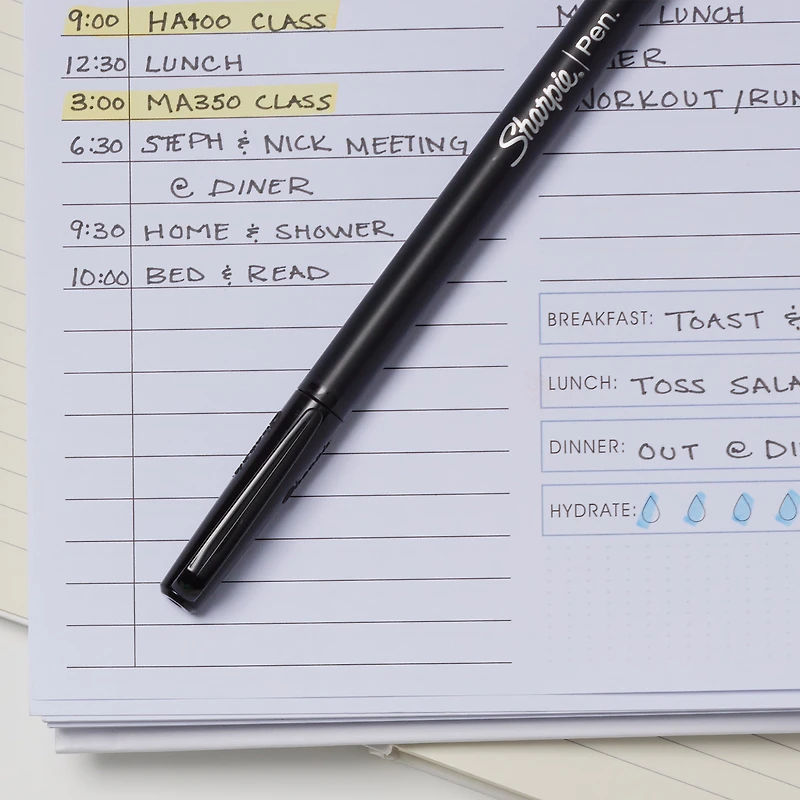 9:00 HA400 CLASS
12:30 LUNCH
3:00 MA350 CLASS
6:30 STEPH & NICK MEETING
@ DINER
9:30 HOME & SHOWER
10:00 BED & READ
Sharpie. | Pen.
LUNCH
WORKOUT / RUN
BREAKFAST: TOAST &
LUNCH: TOSS SALA
DINNER: OUT @ DI
HYDRATE: